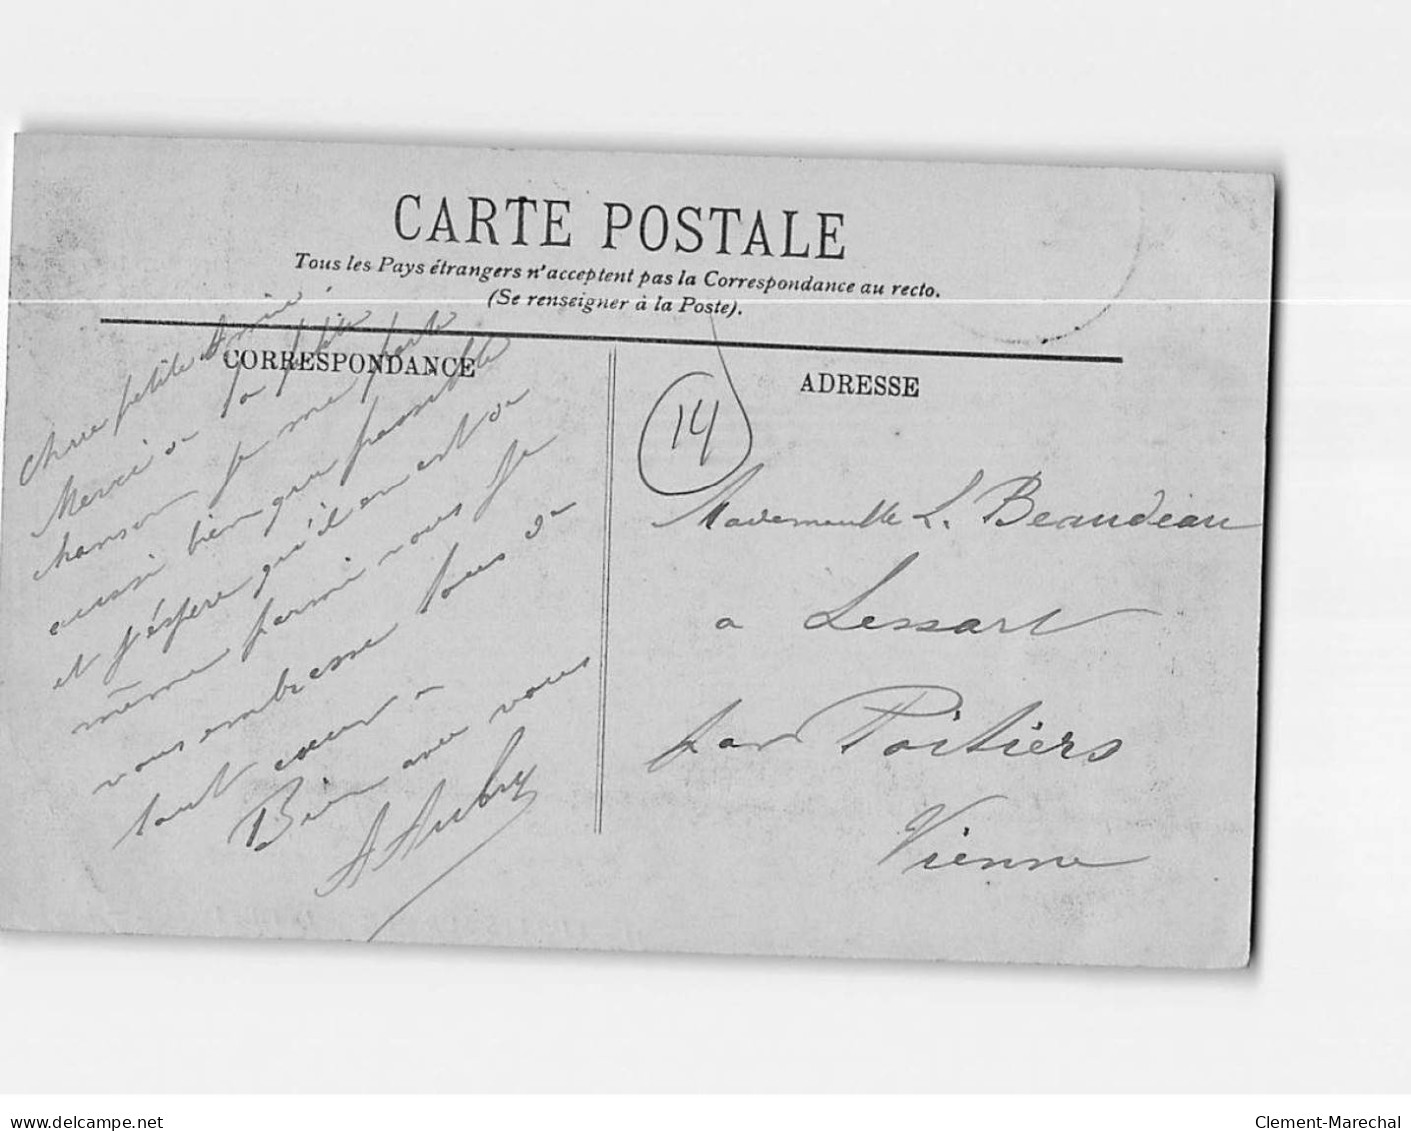 CARTE POSTALE
Tous les Pays étrangers n'acceptent pas la Correspondance au recto.
(Se renseigner à la Poste).
CORRESPONDANCE
Chère petite Amie
Merci de la petite
chanson je me porte
aussi bien que possible
et j'espère qu'il en est de
même parmi vous Je
vous embrasse tous de
tout cœur
Bien avec vous
A Aubry
ADRESSE
14
Mademoiselle L. Beaudeau
a Lessart
par Poitiers
Vienne
delcampe.net
Clement-Marechal